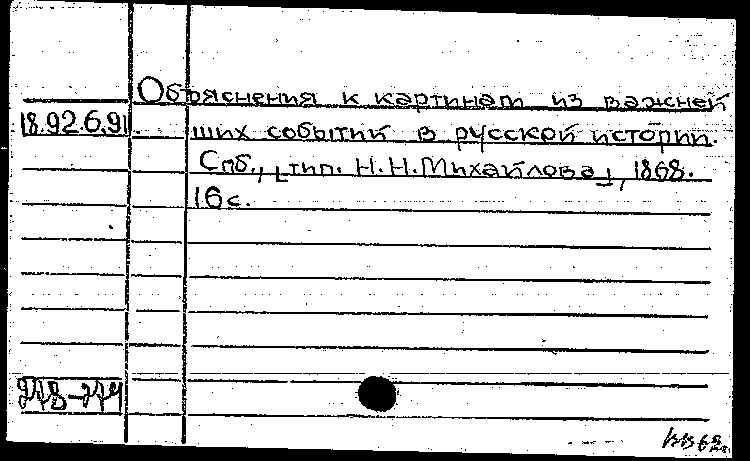 Объяснения к картинам из важней
18.92.6.91
ших событий в русской истории.
Спб., [тип. Н.Н.Михайлова], 1868.
16с.